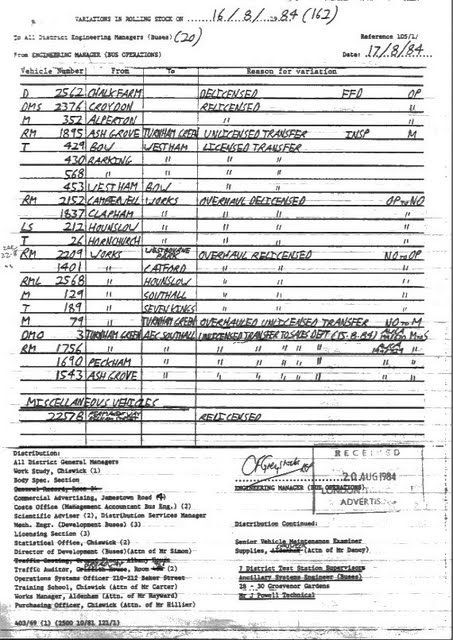 VARIATIONS IN ROLLING STOCK ON 16/8/1984 (162)
To All District Engineering Managers (Buses) (20) Reference 105/1/
From ENGINEERING MANAGER (BUS OPERATIONS) Date: 17/8/84
Vehicle Number From To Reason for variation
D 2562 CHALKFARM DELICENSED FFD OP
DMS 2376 CROYDON RELICENSED "
M 352 ALPERTON " "
RM 1895 ASH GROVE TURNHAM GREEN UNLICENSED TRANSFER INSP M
T 429 BOW WESTHAM LICENSED TRANSFER
430 BARKING " "
568 " " "
453 WESTHAM BOW " "
RM 2152 CAMBERWELL WORKS OVERHAUL DELICENSED OP TO NO
1837 CLAPHAM " " " "
LS 212 HOUNSLOW " " " "
T 26 HORNCHURCH " " " "
RM 2209 WORKS WESTBOURNE PARK OVERHAUL RELICENSED NO TO OP
1401 " CATFORD " " "
RML 2568 " HOUNSLOW " " "
M 129 " SOUTHALL " " "
T 189 " SEVEN KINGS " " "
M 79 " TURNHAM GREEN OVERHAULED UNLICENSED TRANSFER NO TO M
DMO 3 TURNHAM GREEN AEC SOUTHALL UNLICENSED TRANSFER TO SALES DEPT (15.8.84) M TO S
RM 1756 " " " " " " "
1690 PECKHAM " " " " " " "
1543 ASH GROVE " " " " " " "
MISCELLANEOUS VEHICLES
2257B RELICENSED
Distribution:
All District General Managers
Work Study, Chiswick (1)
Body Spec. Section
Commercial Advertising, Jamestown Road
Costs Office (Management Accountant Bus Eng.) (2)
Scientific Adviser (2), Distribution Services Manager
Mech. Engr. (Development Buses) (3)
Licensing Section (3)
Statistical Office, Chiswick (2)
Director of Development (Buses)(Attn of Mr Simon)
Traffic Auditor, Room (2)
Operations Systems Officer 210-212 Baker Street
Training School, Chiswick (Attn of Mr Carter)
Works Manager, Aldenham (Attn. of Mr Hayward)
Purchasing Officer, Chiswick (Attn of Mr Hillier)
403/69 (1) (2500 10/81 121/1)
ENGINEERING MANAGER (BUS OPERATIONS)
RECEIVED
20 AUG 1984
LONDON
ADVERTIS
Distribution Continued:
Senior Vehicle Maintenance Examiner
Supplies, (Attn of Mr Dancy)
7 District Test Station Supervisors
Ancillary Systems Engineer (Buses)
28 - 30 Grosvenor Gardens
Mr J Powell Technical